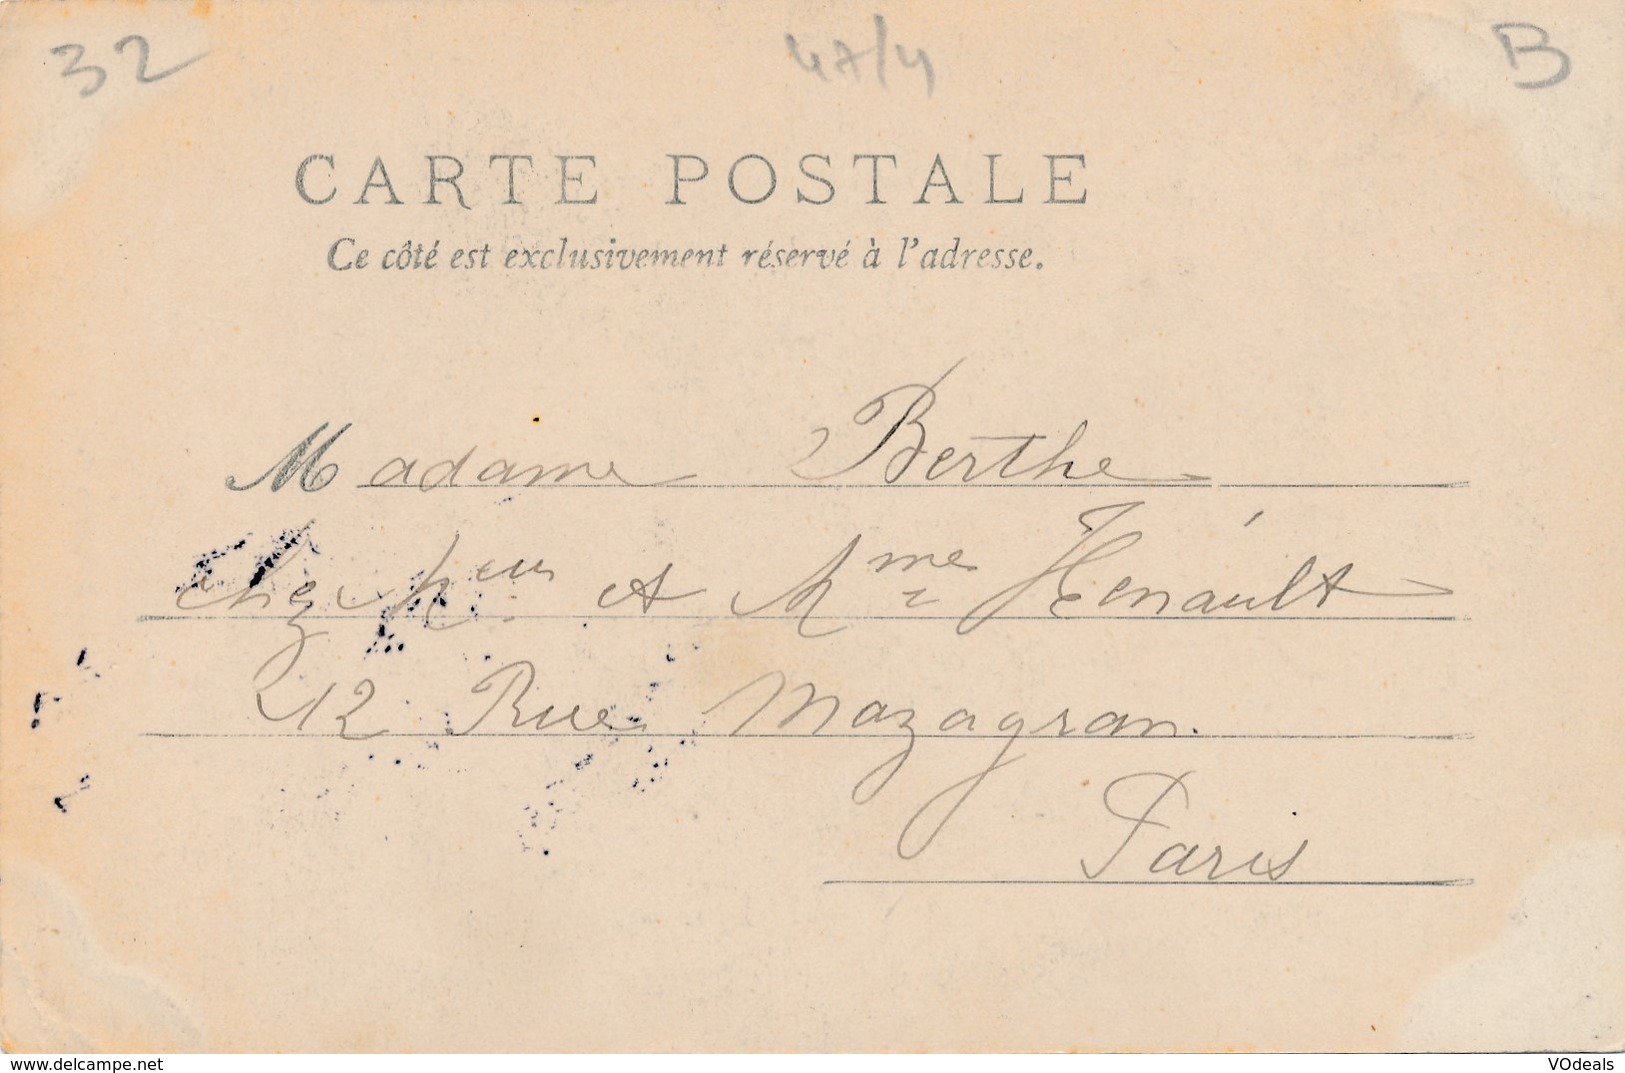 32 47/4 B
CARTE POSTALE
Ce côté est exclusivement réservé à l'adresse.
Madame Berthe
chez Meur et Mme Hénault
12 Rue Mazagran.
Paris
VOdeals